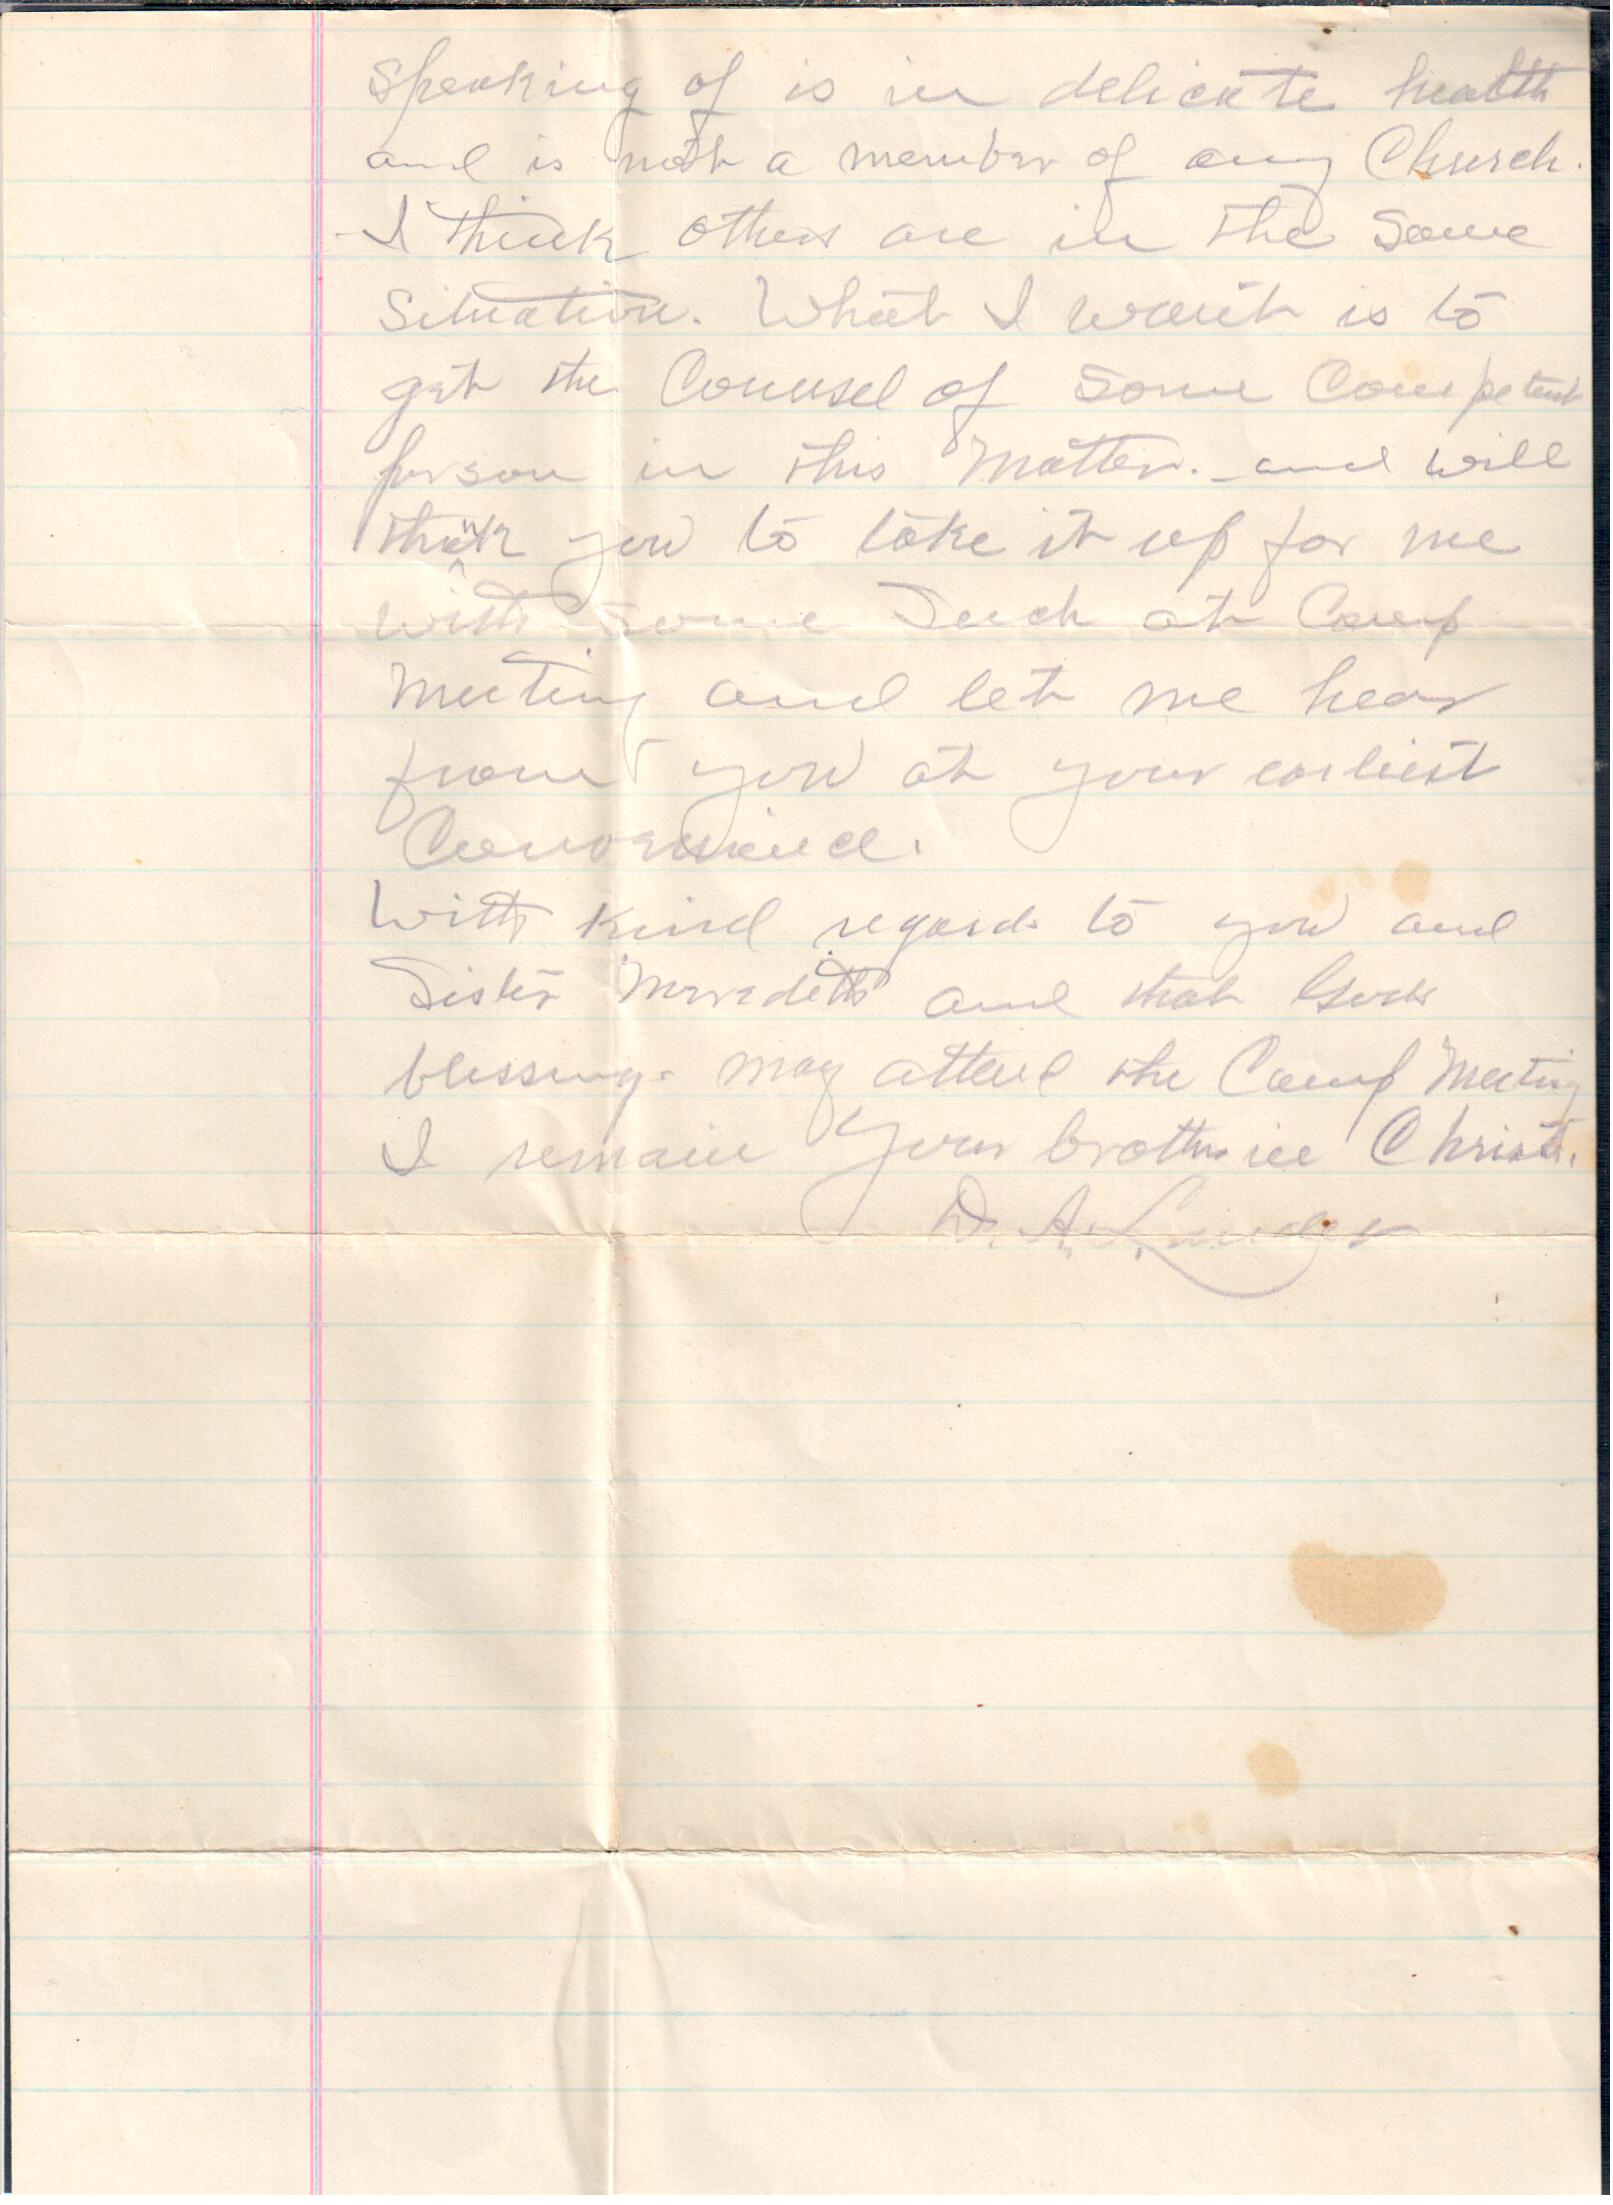 Speaking of is in delicate health
and is not a member of any Church.
I think others are in the Same
Situation. What I want is to
get the Counsel of Some Competent
person in this Matter. - and will
thank you to take it up for me
with Some Such at Camp
Meeting and let me hear
from you at your earliest
Convenience.
With kind regards to you and
Sister Meredith and that Gods
blessings may attend the Camp Meeting
I remain Your brother in Christ.
D. A.